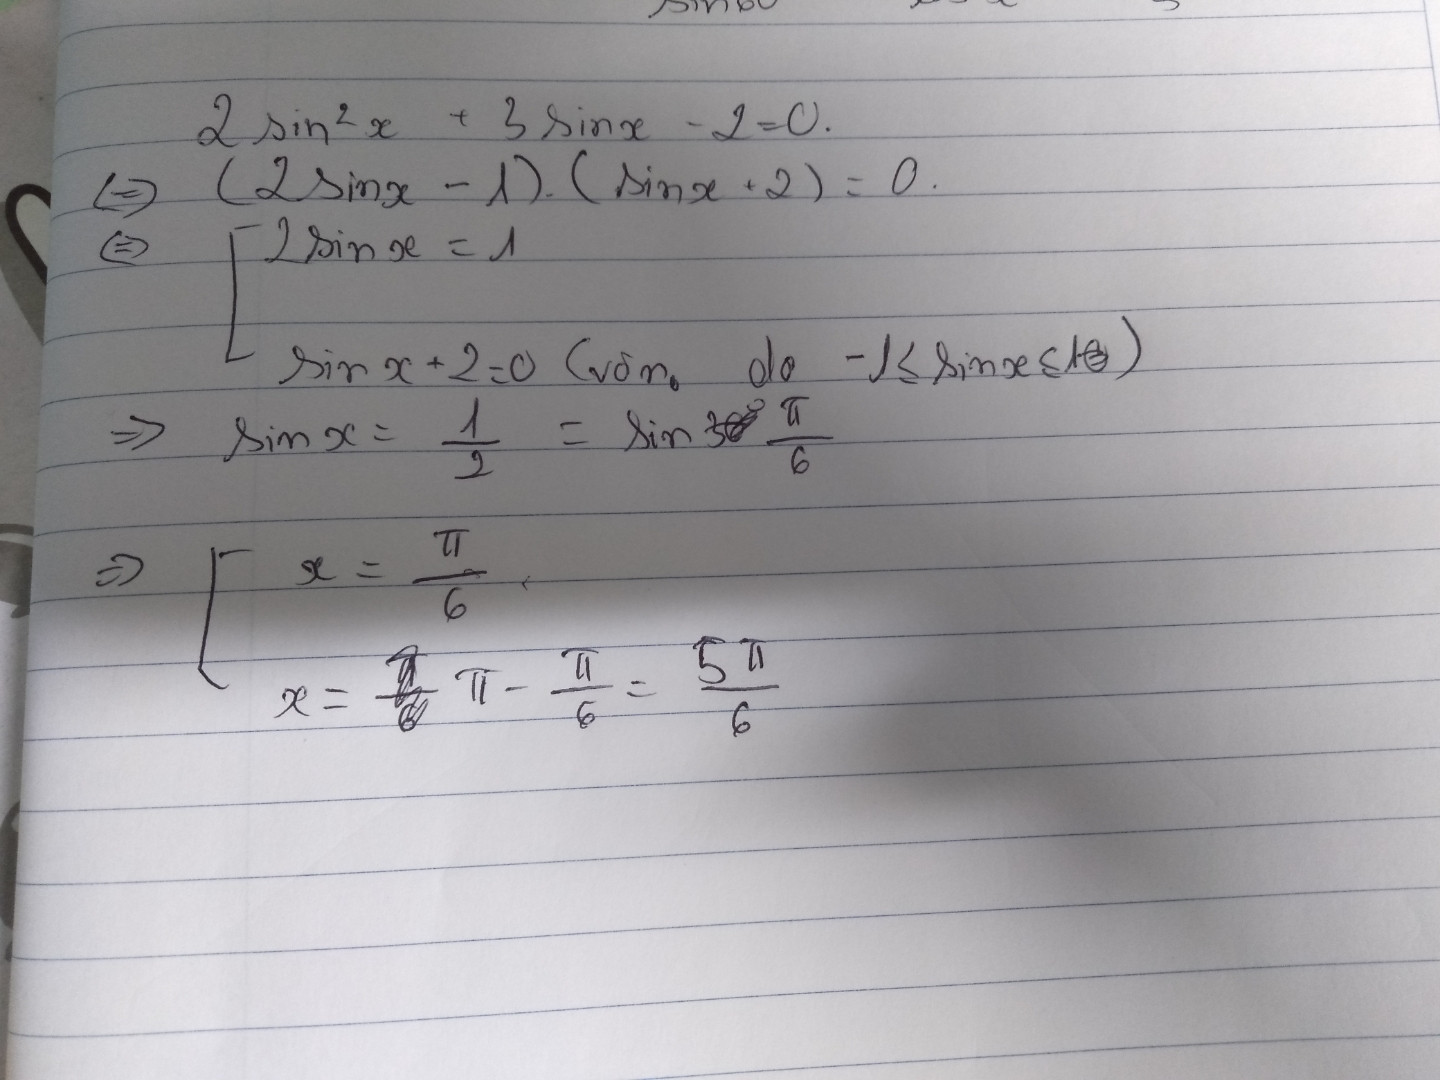 sin60
2 sin²x + 3 sinx - 2 = 0.
(=) (2 sinx - 1).(sinx + 2) = 0.
(=) [ 2 sinx = 1
sinx + 2 = 0 (vôn do -1 ≤ sinx ≤ 1)
=> sinx = 1/2 = sin π/6
=> [ x = π/6
x = π - π/6 = 5π/6